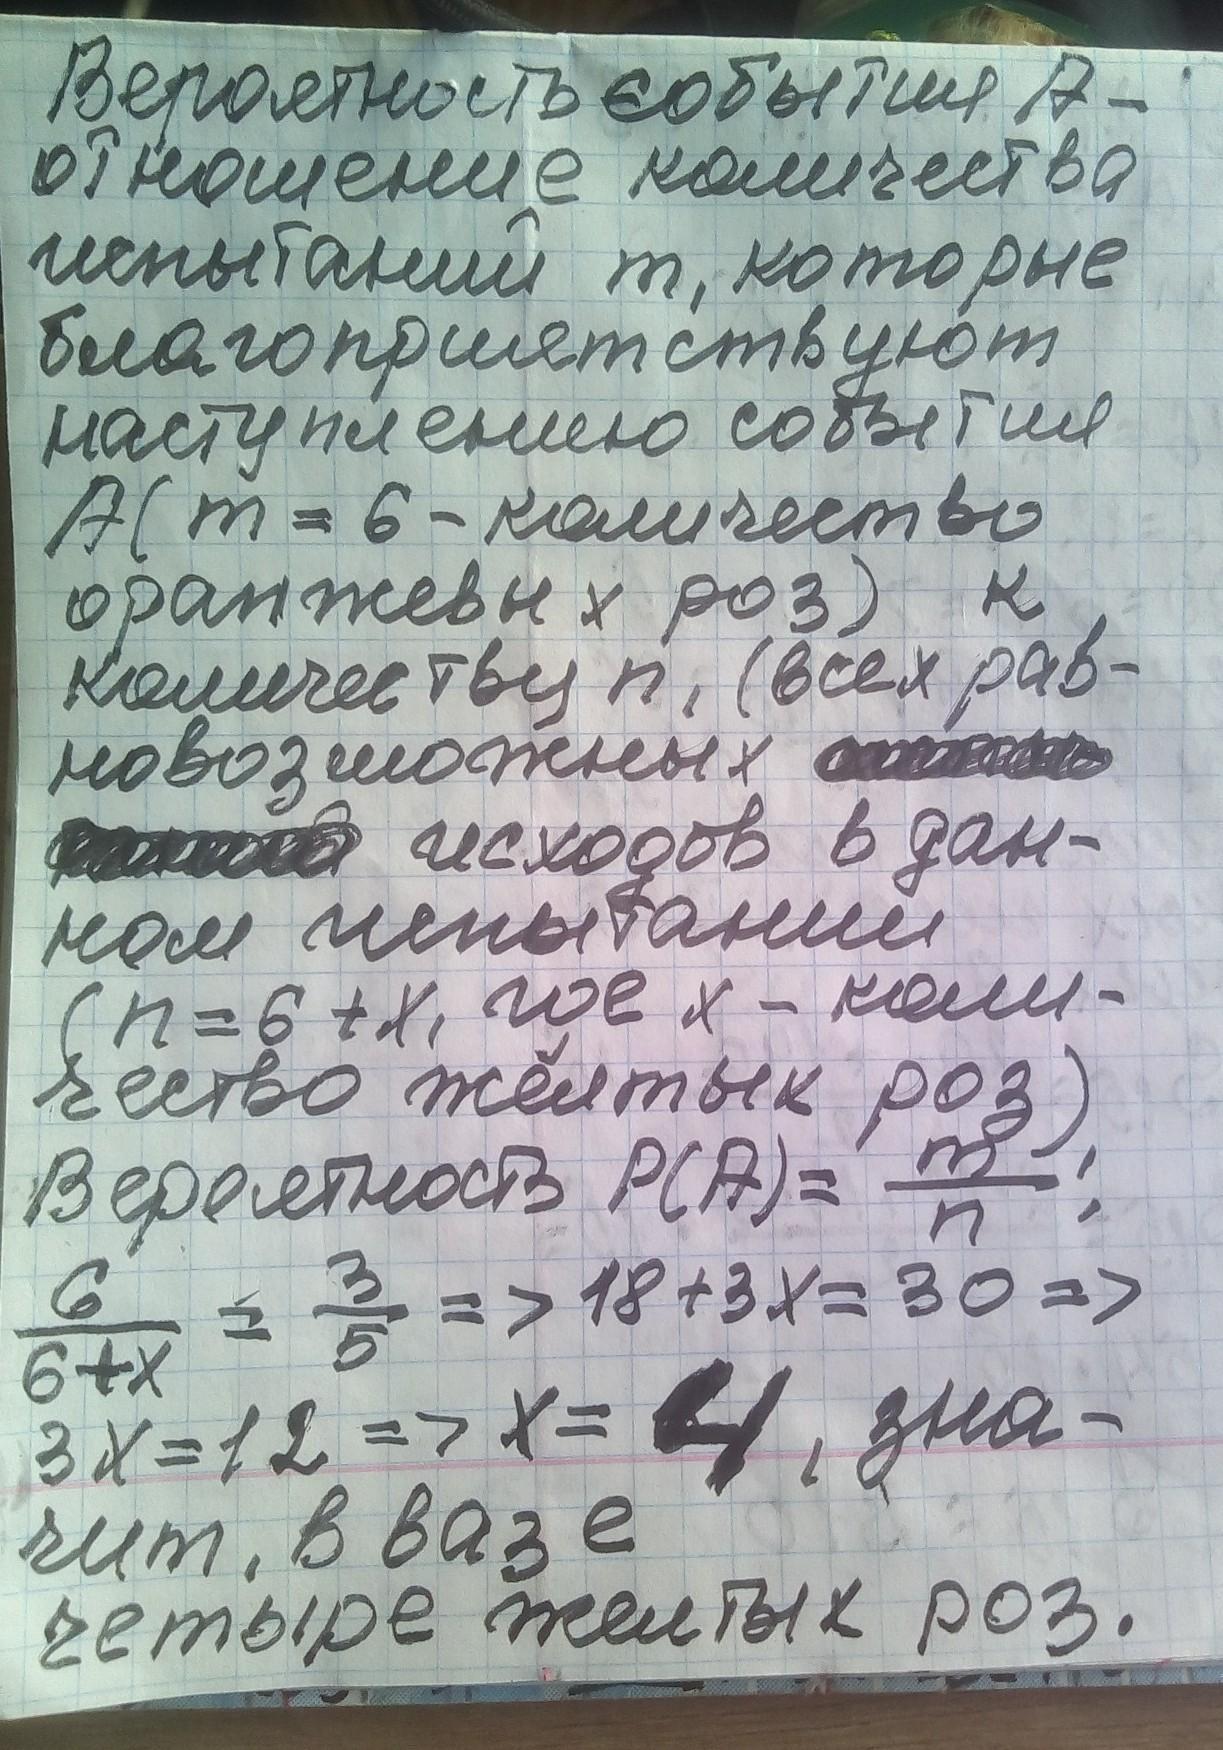 Вероятность события А-
отношение количества
испытаний m, которые
благоприятствуют
наступлению события
А( m = 6 - количество
оранжевых роз) к
количеству n, (всех рав-
новозможных
исходов в дан-
ном испытании
(n = 6 + x, где x - коли-
чество жёлтых роз)
Вероятность P(A) = m/n;
6/(6+x) = 3/5 => 18+3x = 30 =>
3x = 12 => x = 4, зна-
чит, в вазе
четыре желтых роз.